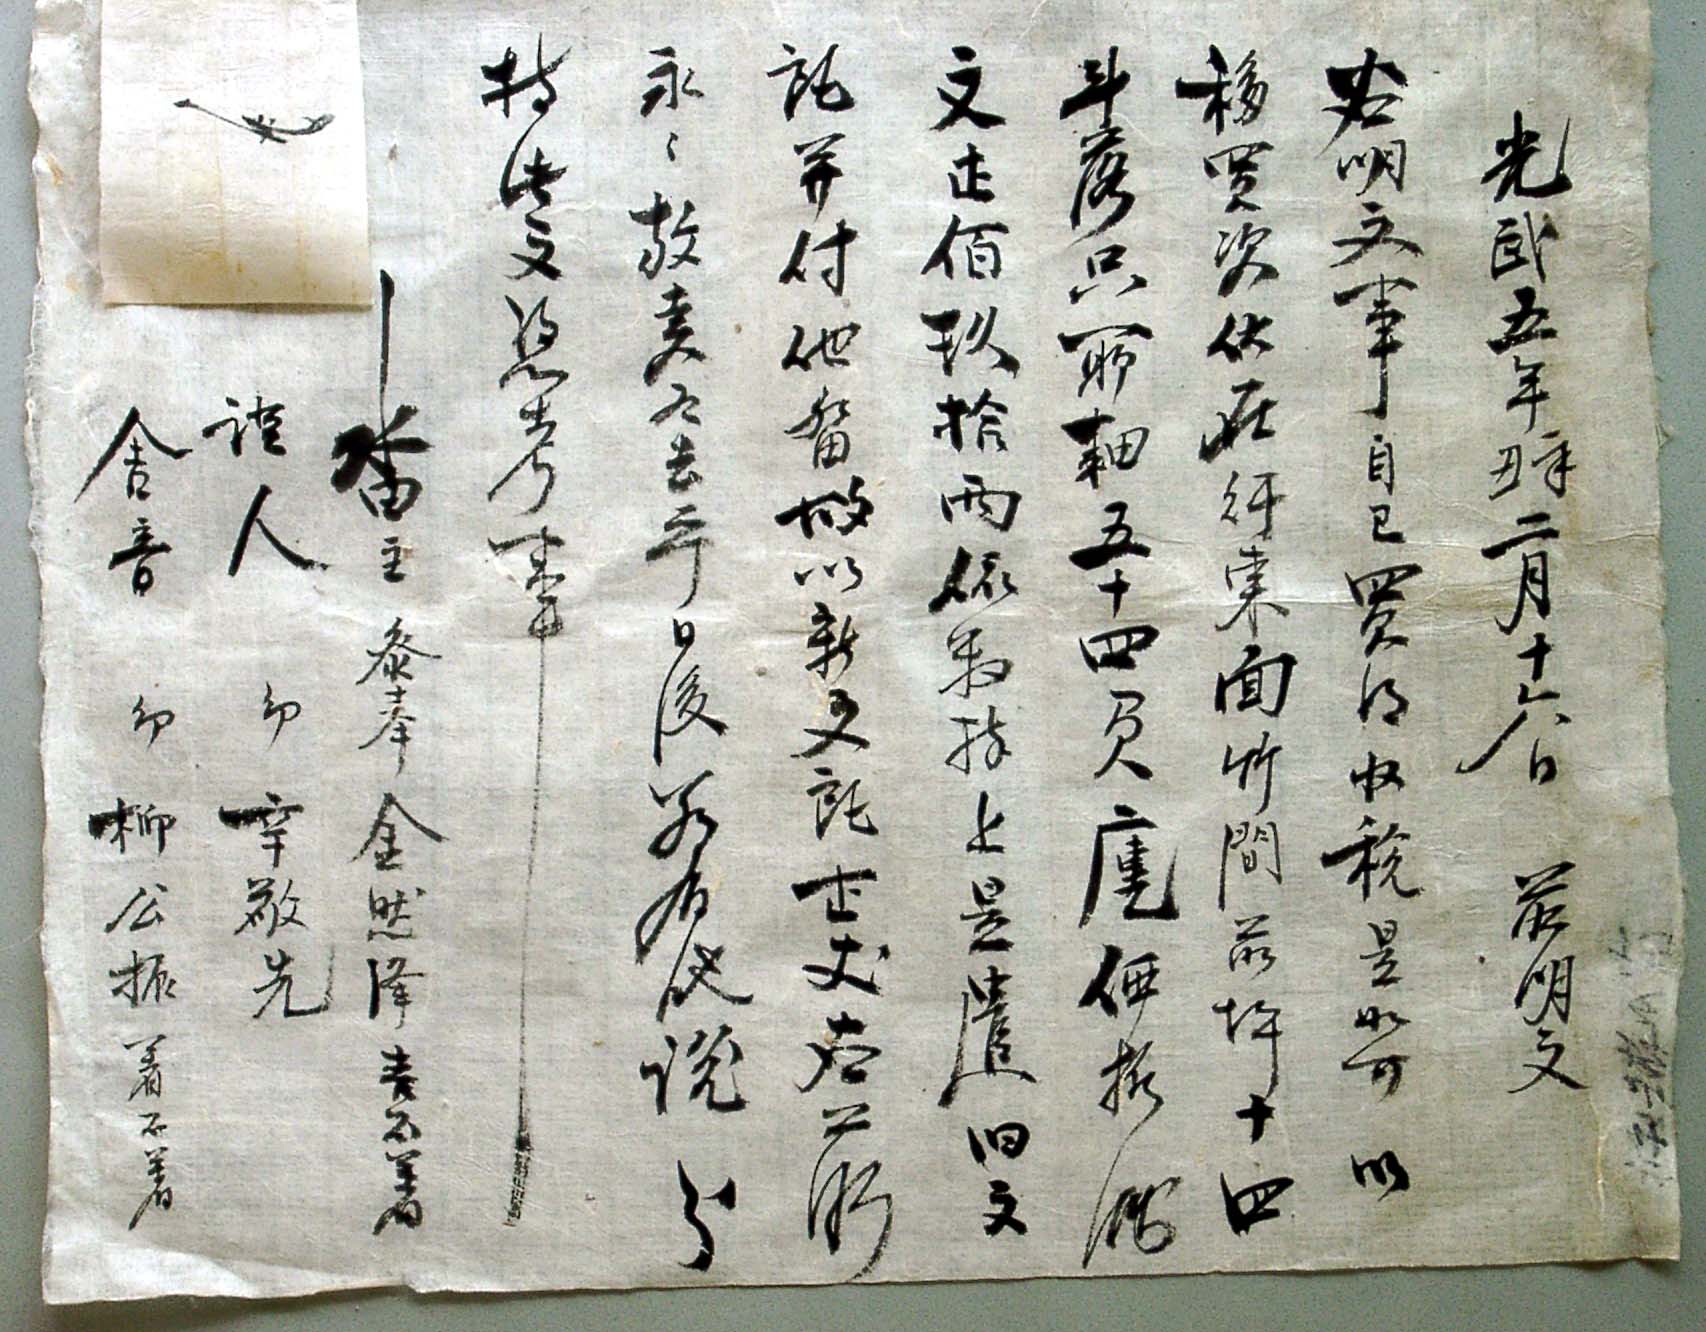 光武五年辛丑二月十六日 前明文
右明文事自己買得收稅是如可以
移買次伏在行東面竹間前坪十四
斗落只所耕畓五十四負庫価折価
文正佰玖拾兩依數捧上是遣旧文
記并付他畓故以新文記壱丈右前
永〻放賣爲去乎日後若有他說則
持此文憑考事
畓主 參奉 金然澤 喪不着
證人 幼 辛敬先
舍音 幼 柳公振 着不着